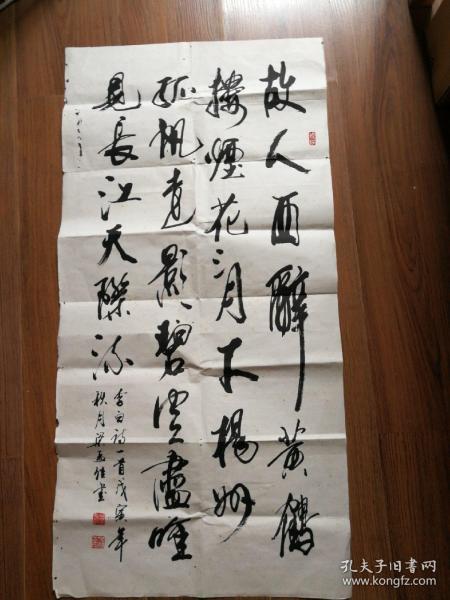 故人西辭黄鶴
樓煙花三月下楊州
孤帆遠影碧空盡唯
見長江天際流
李白詩一首戊寅年
秋月書
孔夫子旧书网
www.kongfz.com